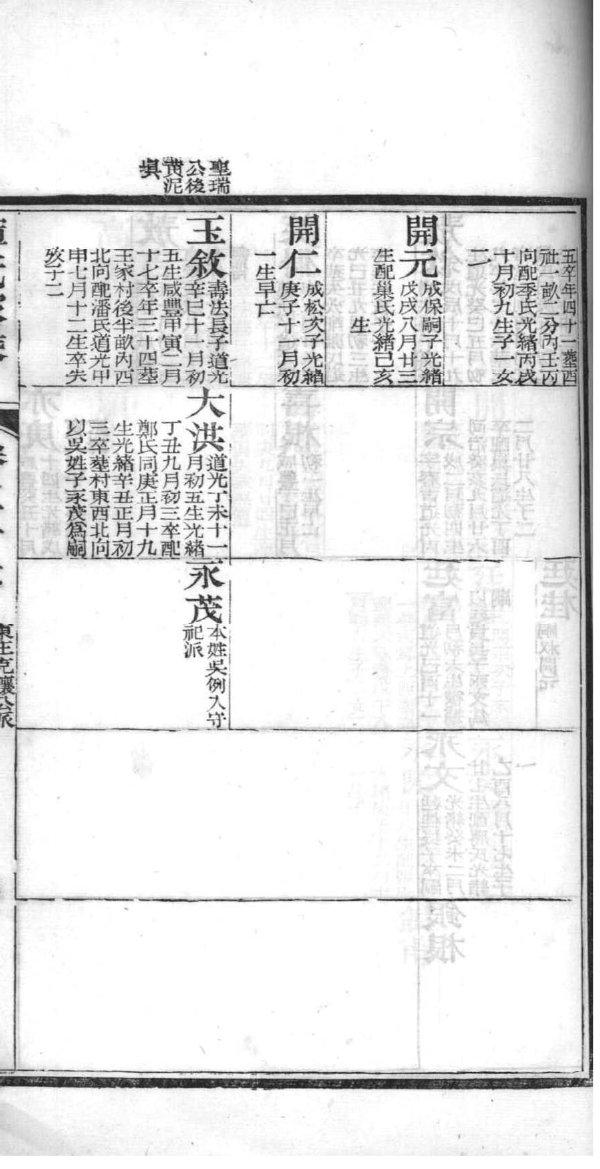 聖瑞
公後
黄泥
埧
五卒年四十一墓西
祉一畝二分內壬丙
向配季氏光緒丙戌
十月初九生子一女
二
開元
成保嗣子光緒
戊戌八月廿三
生配巢氏光緒己亥
生
開仁
成松次子光緒
庚子十一月初
一生早亡
玉敘
壽法長子道光
辛巳十一月初
五生咸豐甲寅二月
十七卒年三十四墓
王家村後半畝內西
北向配潘氏道光甲
申七月十二生卒失
攷子二
大洪
道光丁未十一
月初五生光緒
丁丑九月初三卒配
鄭氏同庚正月十九
生光緒辛丑正月初
三卒墓村東西北向
以吳姓子永茂爲嗣
永茂
本姓吳例入守
祀派
東王克讓公派